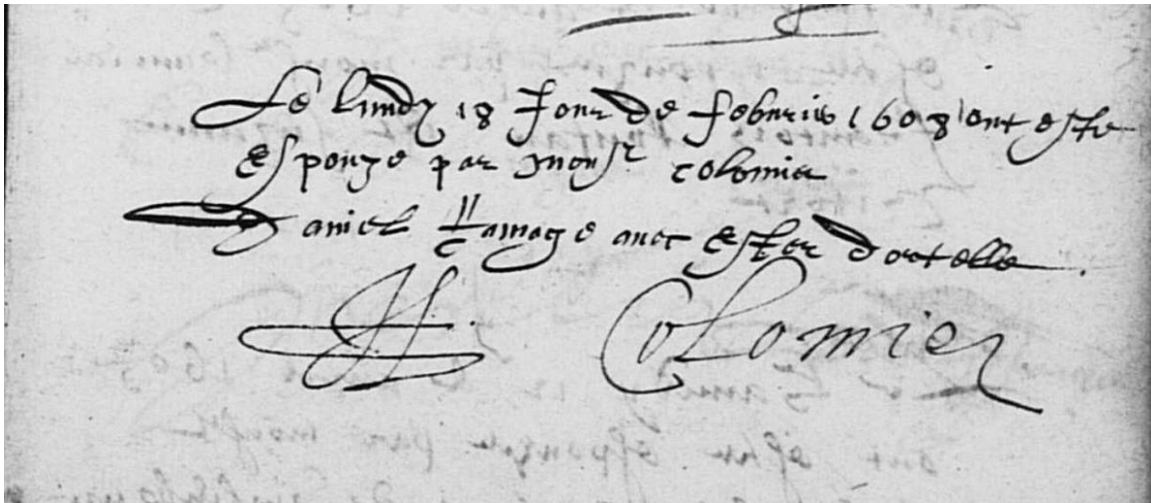 Le lundy 18 Jour de febvrier 1608 ont este
Espouze par Monsr Colomier
Daniel Ramage avec Ester Dortelle
H Colomier